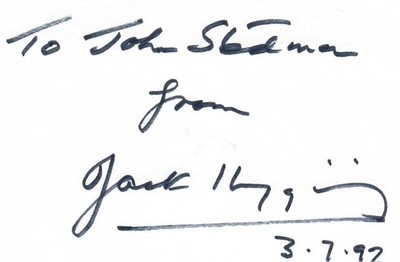 To John Stedman
from
Jack Higgins
3.7.92